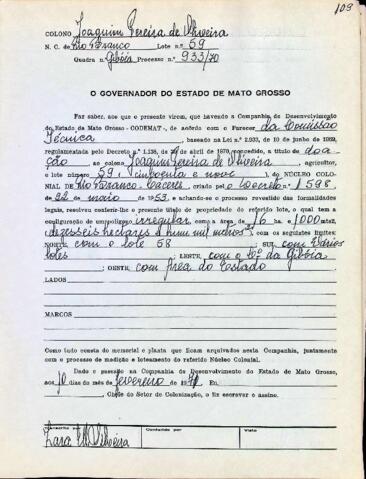 109
COLONO Joaquim Pereira de Oliveira
N. C. de Rio Branco Lote n.º 59
Quadra n.º Gibóia Processo n.º 933/70
O GOVERNADOR DO ESTADO DE MATO GROSSO
Faz saber, aos que o presente virem, que havendo a Companhia de Desenvolvimento
do Estado de Mato Grosso - CODEMAT -, de acôrdo com o Parecer da Comissão
Técnica, baseado na Lei n.º 2.933, de 10 de junho de 1969,
regulamentada pelo Decreto n.º 1.138, de de abril de 1970, concedido, a título de doa
ção ao colono Joaquim Pereira de Oliveira, agricultor,
o lote número 59 (cinquenta e nove) do NÚCLEO COLO-
NIAL DE Rio Branco-Cáceres, criado pelo Decreto n.º 1598,
de 22 de maio de 1953, e achando-se o processo revestido das formalidades
legais, resolveu conferir-lhe o presente título de propriedade do referido lote, o qual tem a
configuração de um polígono irregular com a área de 16 ha. 1000 mts²
(dezesseis hectares e hum mil metros²), com os seguintes limites:
NORTE com o lote 58; SUL com vários
lotes; LESTE com o Cº da Gibóia
; OESTE com Área do Estado
LADOS
MARCOS
Como tudo consta do memorial e planta que ficam arquivados nesta Companhia, juntamente
com o processo de medição e loteamento do referido Núcleo Colonial.
Dado e passado na Companhia de Desenvolvimento do Estado de Mato Grosso,
aos 10 dias do mês de fevereiro de 1971 Eu,
, Chefe do Setor de Colonização, o fiz escrever e assino.
Transcrito por Conferido por Visto
Oliveira